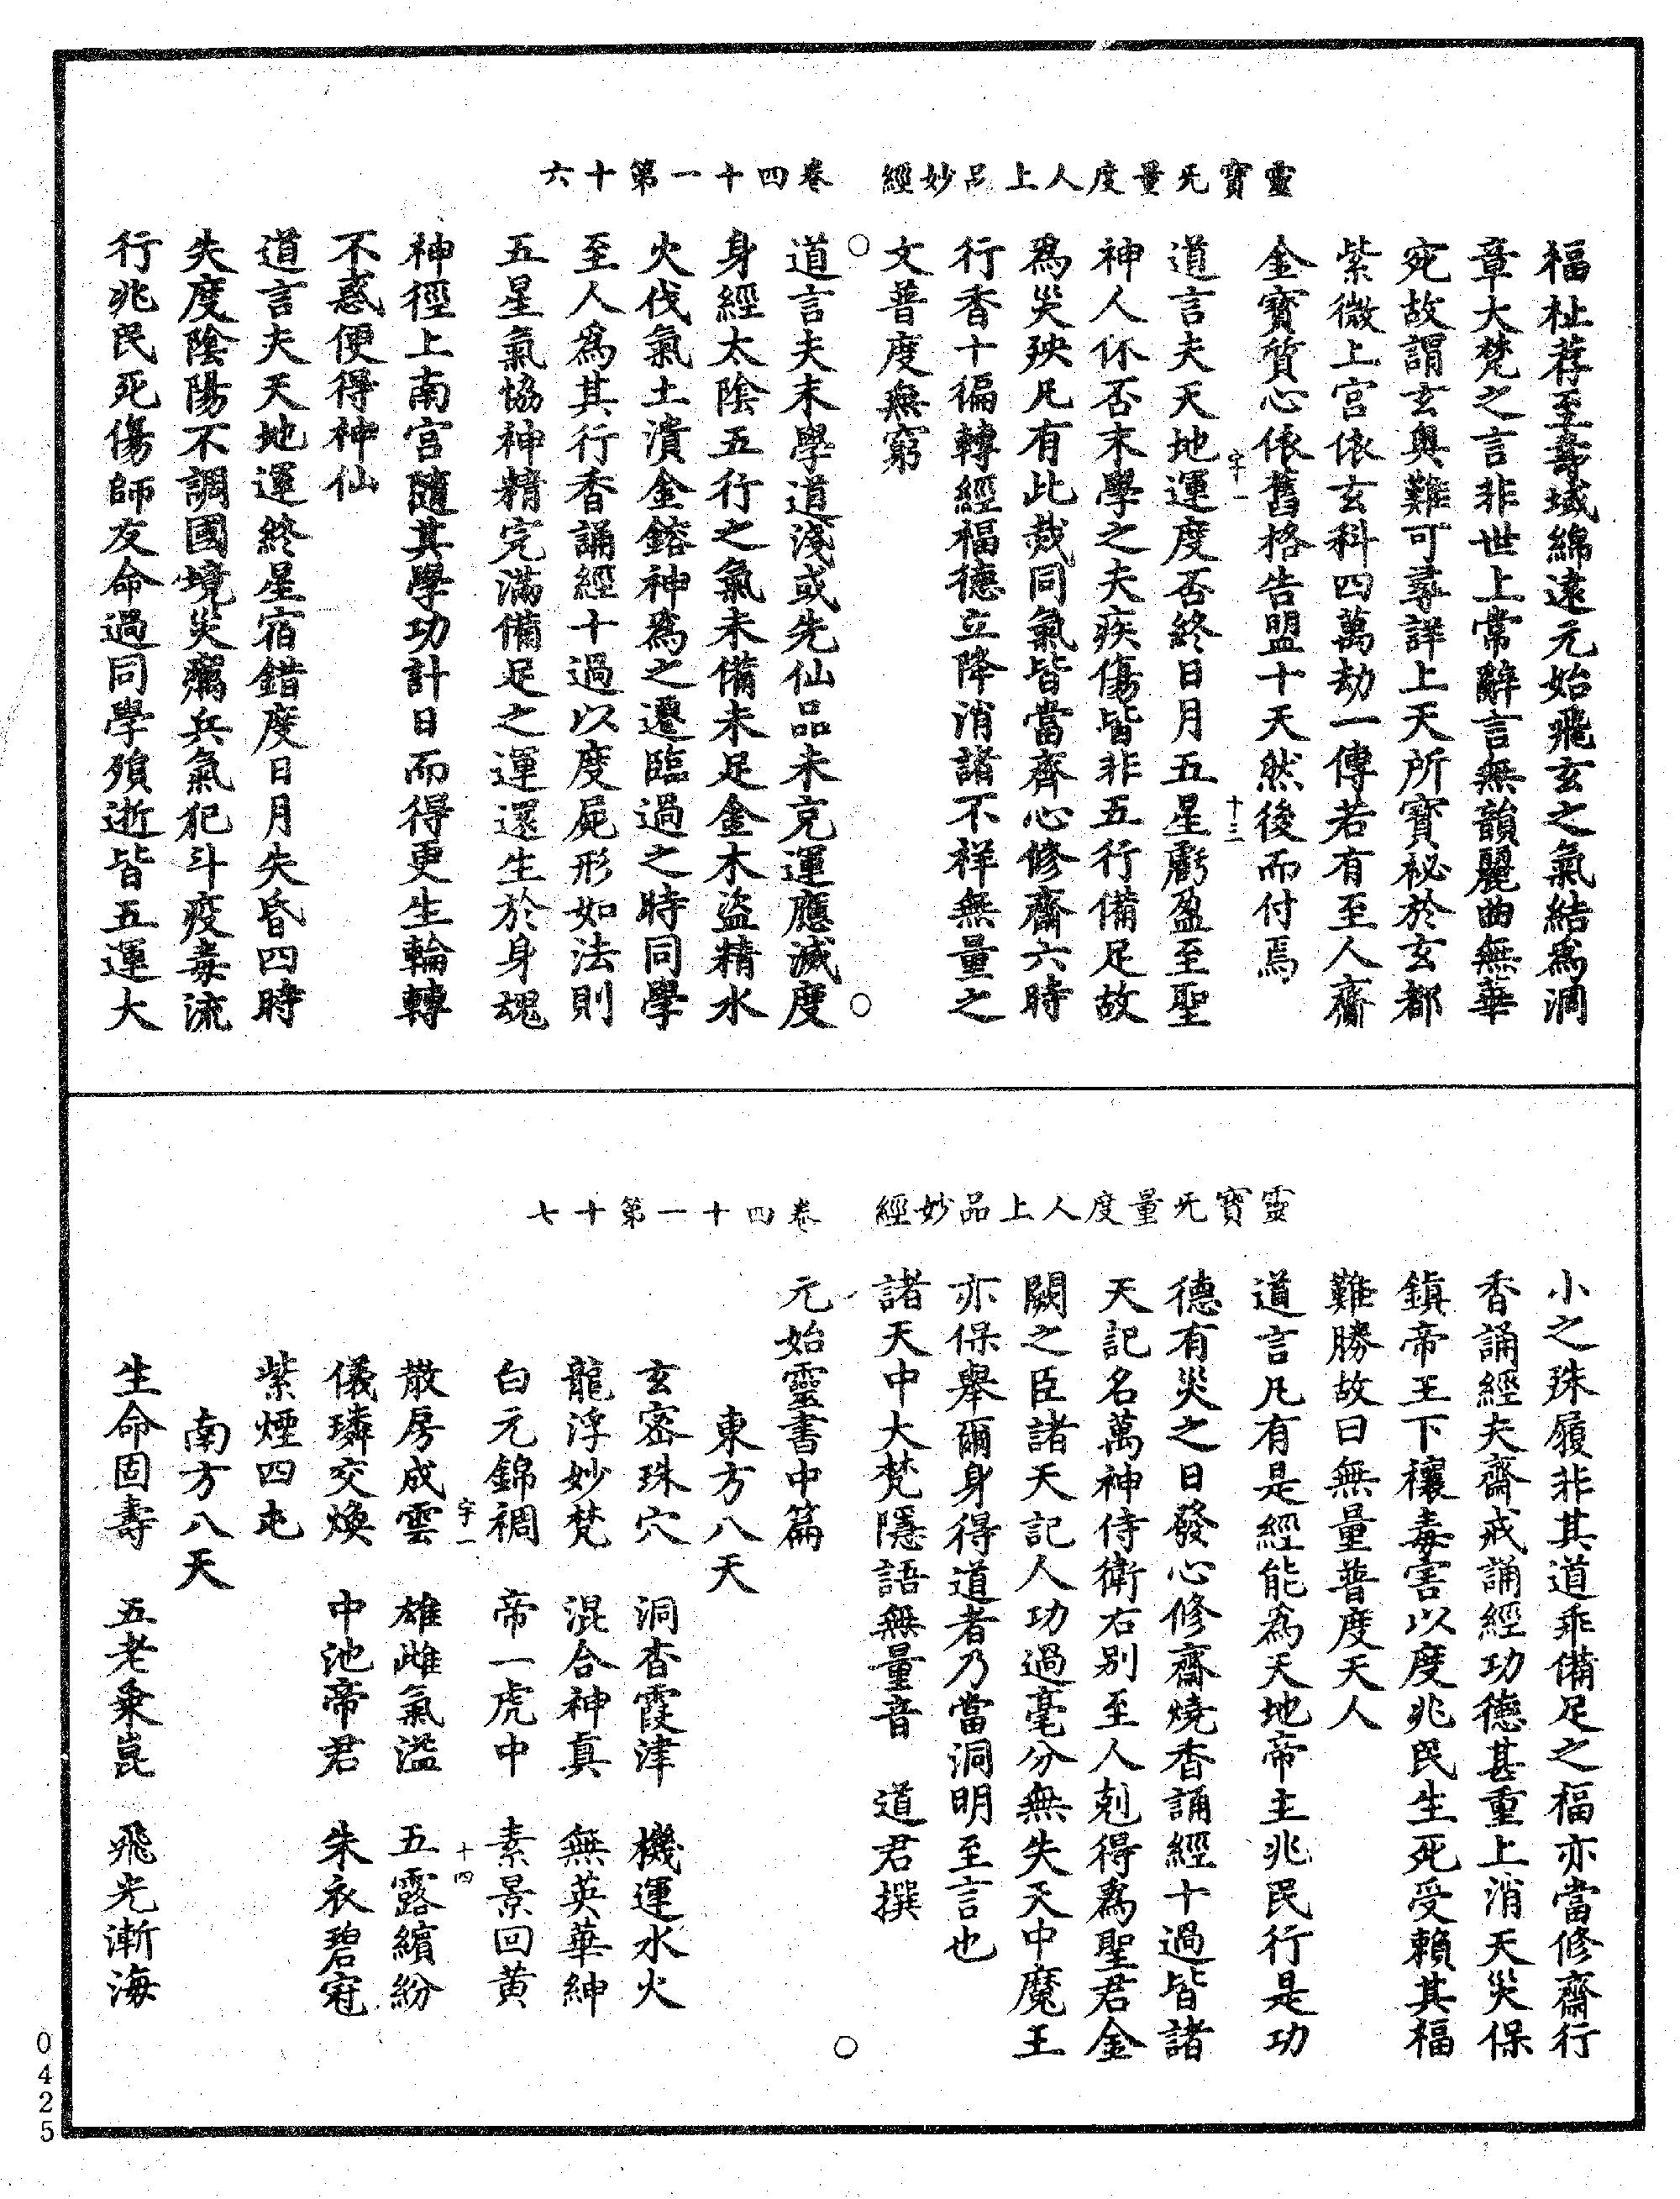 靈寶无量度人上品妙經　卷四十一第十六
福祉荐至壽域綿遠元始飛玄之氣結為洞
章大梵之言非世上常辭言無韻麗曲無華
宛故謂玄奥難可尋詳上天所寶祕於玄都
紫微上宮依玄科四萬劫一傳若有至人齋
金寶質心依舊格告盟十天然後而付焉
宇一　十三
道言夫天地運度否終日月五星虧盈至聖
神人休否末學之夫疾傷皆非五行備足故
為災殃凡有此烖同氣皆當齊心修齋六時
行香十徧轉經福德立降消諸不祥無量之
文普度無窮
道言夫末學道淺或先仙品未克運應滅度
身經太陰五行之氣未備未足金木盜精水
火伐氣土潰金鎔神為之遷臨過之時同學
至人為其行香誦經十過以度屍形如法則
五星氣協神精完滿備足之運還生於身魂
神徑上南宮隨其學功計日而得更生輪轉
不惑便得神仙
道言夫天地運終星宿錯度日月失昏四時
失度陰陽不調國境災癘兵氣犯斗疫毒流
行兆民死傷師友命過同學殞逝皆五運大
靈寶无量度人上品妙經　卷四十一第十七
小之殊履非其道乖備足之福亦當修齋行
香誦經夫齋戒誦經功德甚重上消天災保
鎮帝王下禳毒害以度兆民生死受賴其福
難勝故曰無量普度天人
道言凡有是經能為天地帝主兆民行是功
德有災之日發心修齋燒香誦經十過皆諸
天記名萬神侍衛右別至人剋得為聖君金
闕之臣諸天記人功過毫分無失天中魔王
亦保舉爾身得道者乃當洞明至言也
諸天中大梵隱語無量音　道君撰
元始靈書中篇
東方八天
玄密珠穴　洞杳霞津　機運水火
龍浮妙梵　混合神真　無英華紳
白元錦裯　帝一虎中　素景回黃
宇一　十四
散房成雲　雄雌氣溢　五露繽紛
儀璘交煥　中池帝君　朱衣碧冠
紫煙四屯
南方八天
生命固壽　五老乘崑　飛光漸海
0425